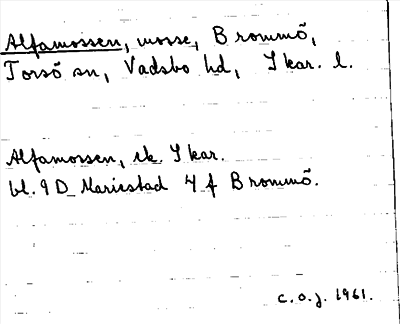 Alfamossen, mosse, Brommö,
Torsö sn, Vadsbo hd, Skar. l.
Alfamossen, ek. Skar.
bl. 9D Mariestad 4 f Brommö.
c.o.j. 1961.